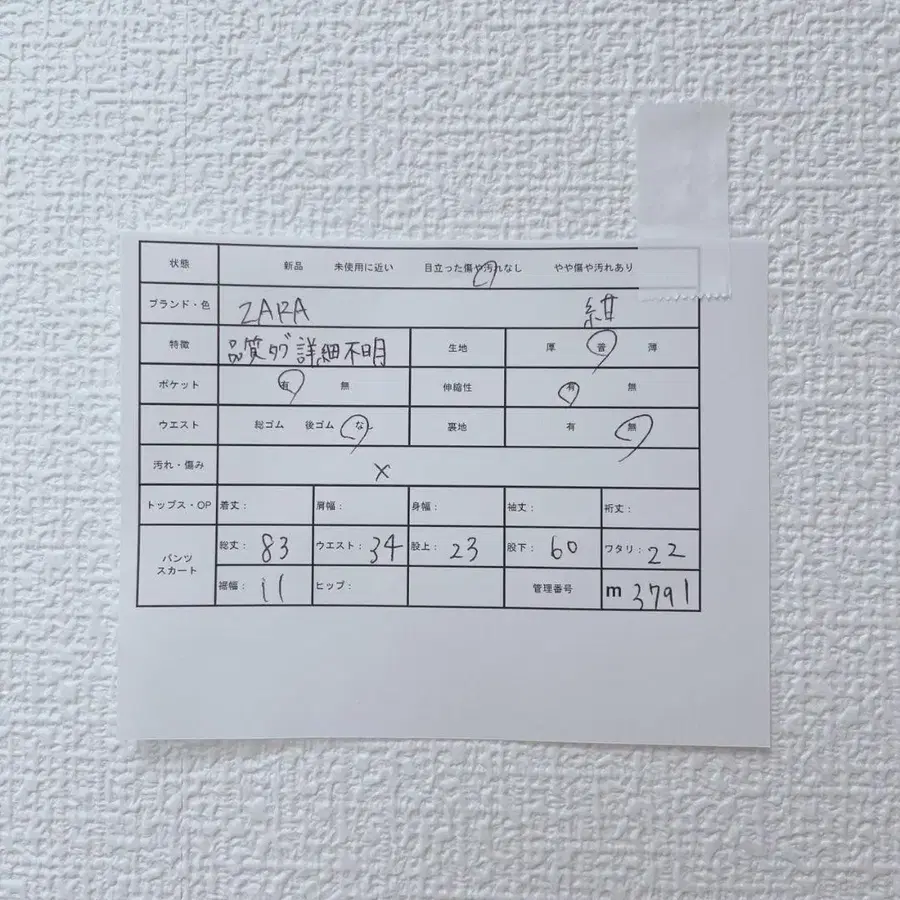 状態 新品 未使用に近い 目立った傷や汚れなし やや傷や汚れあり
ブランド・色 ZARA 紺
特徴 品質タグ詳細不明 生地 厚 普 薄
ポケット 有 無 伸縮性 有 無
ウエスト 総ゴム 後ゴム なし 裏地 有 無
汚れ・傷み x
トップス・OP 着丈: 肩幅: 身幅: 袖丈: 裄丈:
パンツ スカート 総丈: 83 ウエスト: 34 股上: 23 股下: 60 ワタリ: 22
裾幅: 11 ヒップ: 管理番号 m 3791